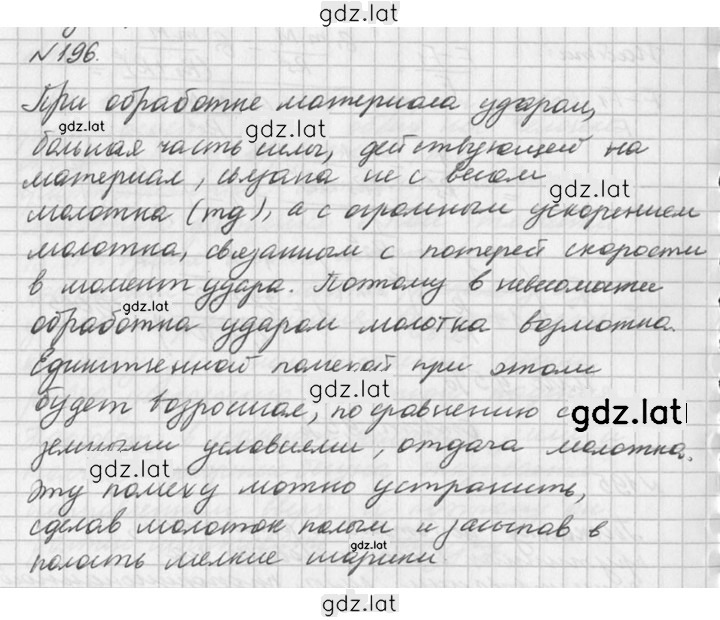 gdz.lat
№196.
При обработке материала ударом,
gdz.lat gdz.lat
большая часть силы, действующей на
материал, связана не с весом
gdz.lat
молотка (mg), а с огромным ускорением
молотка, связанным с потерей скорости
в момент удара. Поэтому в невесомости
gdz.lat
обработка ударом молотка возможна.
Единственной помехой при этом
gdz.lat
будет возросшая, по сравнению с
gdz.lat
земными условиями, отдача молотка.
gdz.lat
Эту помеху можно устранить,
сделав молоток полым и засыпав в
gdz.lat
полость мелкие шарики
gdz.lat